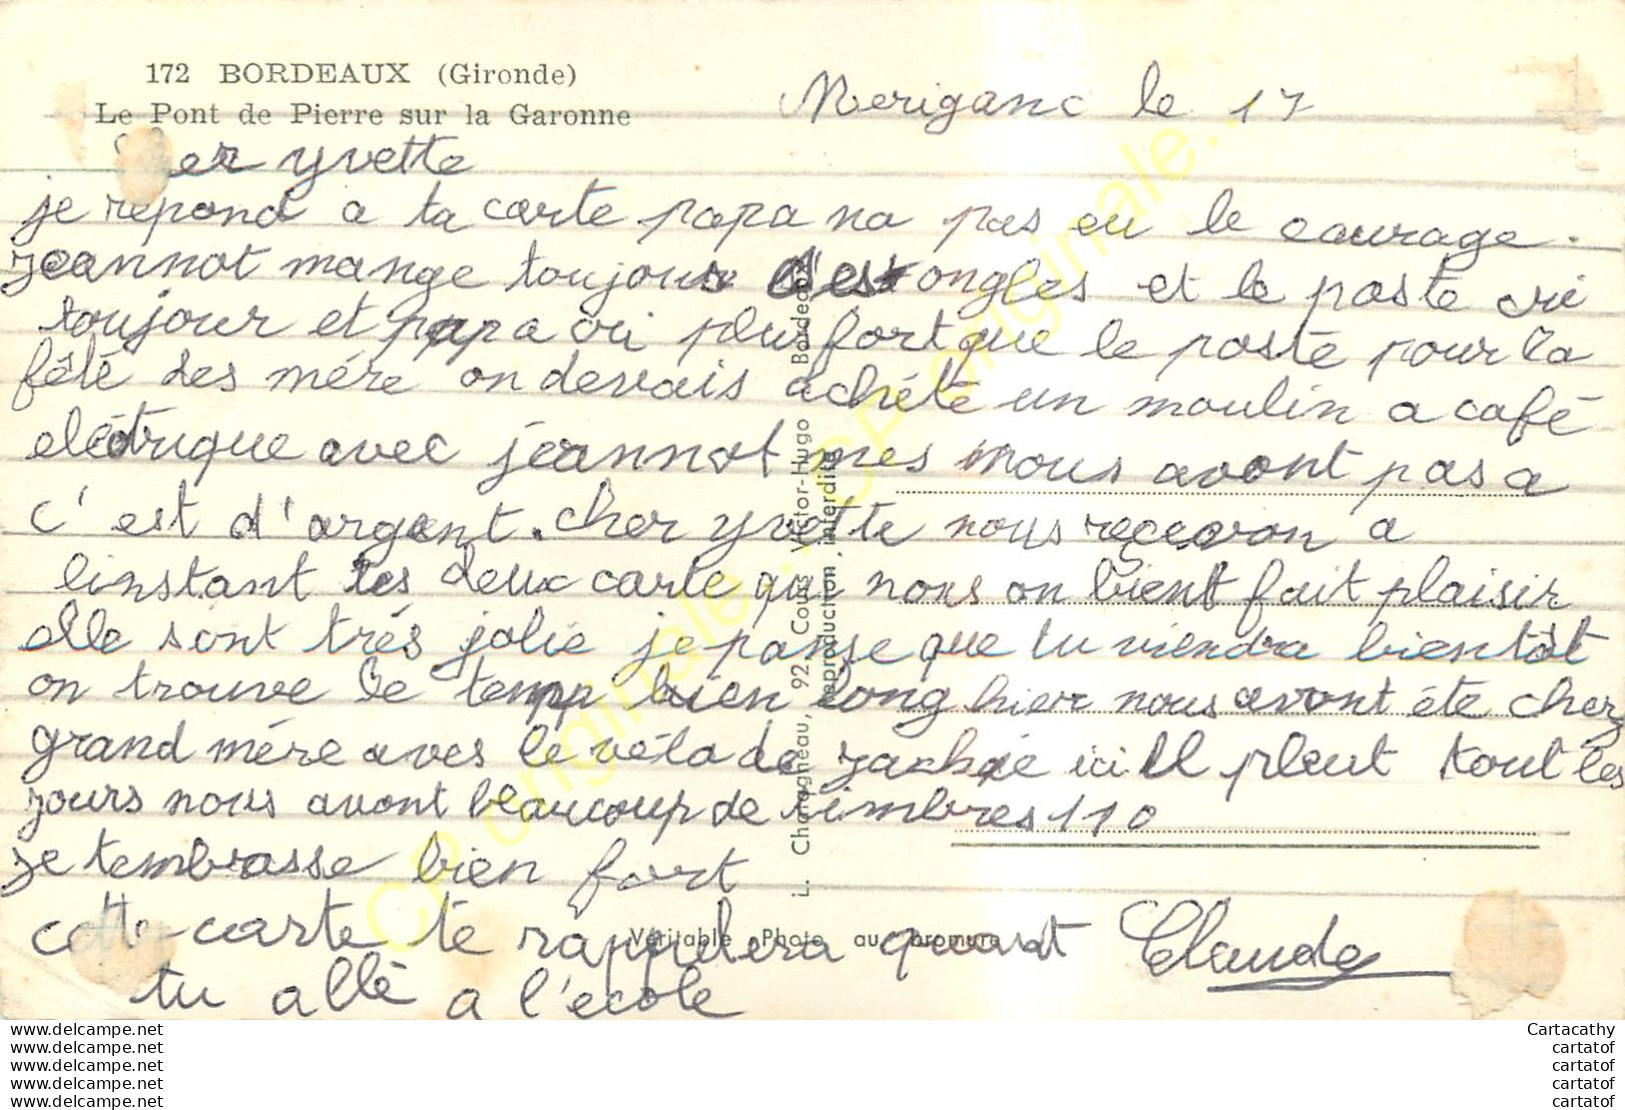 172 BORDEAUX (Gironde)
Le Pont de Pierre sur la Garonne
Meriganc le 17
cher yvette
je repond a ta carte papa na pas eu le courage.
jeannot mange toujours des ongles et le poste cri
toujour et papa cri plus fort que le poste pour la
fêté des mére on devais achété un moulin a café
eléctrique avec jeannot mes nous avont pas a
c'est d'argent. cher yvette nous recevon a
linstant les deux carte qui nous on bient fait plaisir
elle sont trés jolie je panse que tu viendra bientôt
on trouve le temp bien long hier nous avont été cher
grand mére aves le vélo de jackie ici il pleut tout les
jours nous avont beaucoup de timbres 110
je tembrasse bien fort
cette carte te rappelera quant Claude
tu allé a l'école
L. Chatagneau, 92 Cours Victor-Hugo Bordeaux
reproduction interdite
Véritable Photo au bromure
CP originale... CP originale...
www.delcampe.net
www.delcampe.net
www.delcampe.net
www.delcampe.net
www.delcampe.net
Cartacathy
cartatof
cartatof
cartatof
cartatof